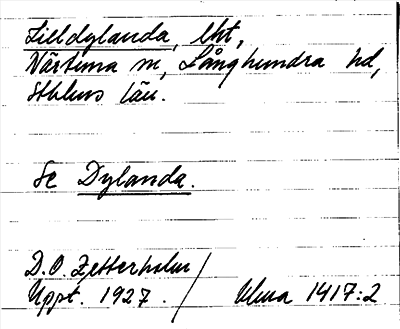 Lilldylanda, lht,
Närtuna sn, Långhundra hd,
Sthlms län.
Se Dylanda.
D. O. Zetterholm
Uppt. 1927. / Ulma 1417:2